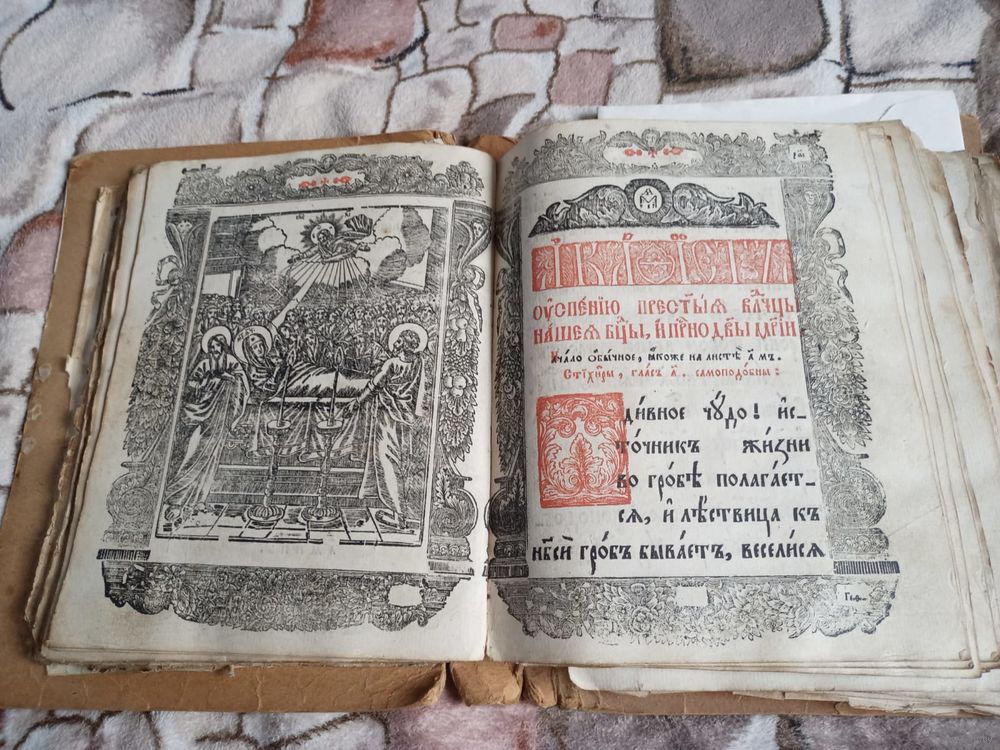 АКАѲІСТЪ
ОУ҆СПЕ́НІЮ ПРЕСТ҃Ы́Ѧ ВЛⷣЧЦЫ
НА́ШЕѦ БЦ҃Ы, И҆ ПРⷭ҇НО ДВ҃Ы МР҃І́И
Нача́ло ѻ҆бы́чное, ꙗ҆́коже на листѣ̀ а҃ мъ.
Стїхи́ры, гла́съ а҃. самоподо́бны:
ди́вное чꙋ́до! и҆с-
то́чникъ жи́зни
во гро́бѣ полага́ет-
сѧ, и҆ лѣ́ствица къ
нб҃сѝ гро́бъ быва́етъ, весели́сѧ